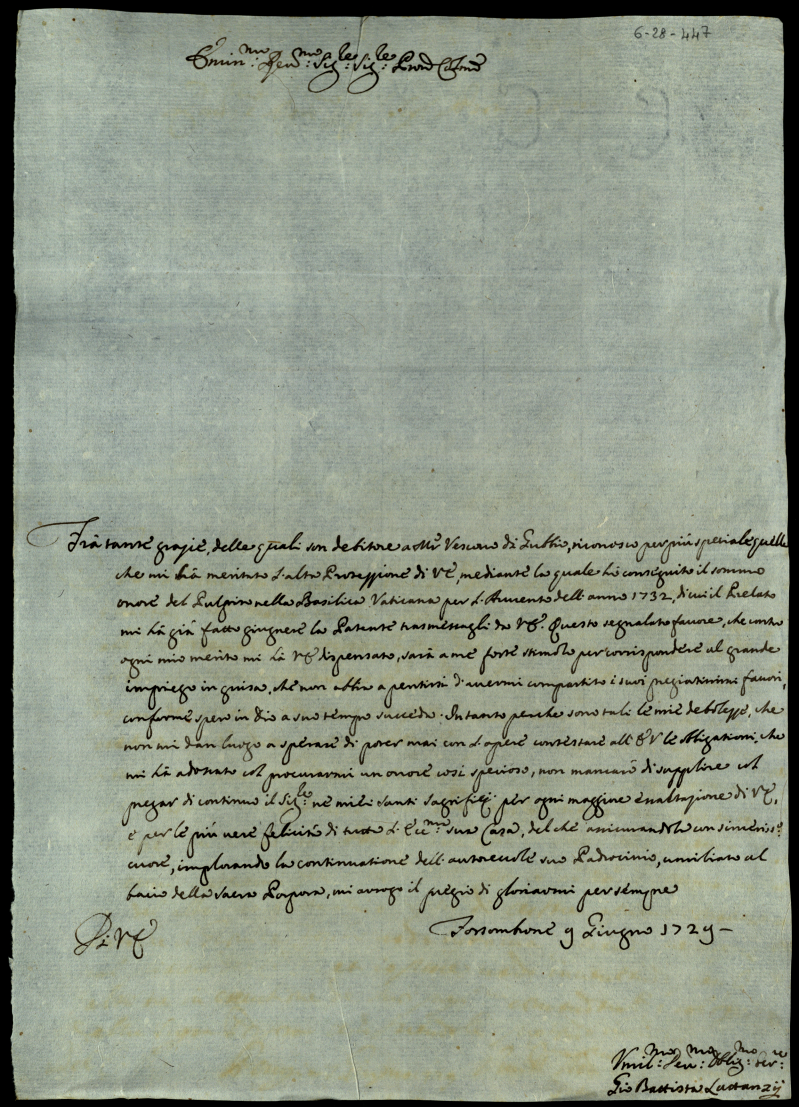 6-28-447
Emin:mo Rev:mo Sig:re Sig:re Pron Colmo
Frà tante grazie, delle quali son debitore a Mr Vescovo di Gubbio, riconosco per più speciale quella
che mi hà meritato l'alta Protezzione di VE, mediante la quale hò conseguito il sommo
onore del Pulpito nella Basilica Vaticana per l'Avvento dell'anno 1732, di cui il Prelato
mi hà già fatto giugnere la Patente trasmessagli da VE. Questo segnalato favore, che contro
ogni mio merito mi hà VE dispensato, sarà a me forte stimolo per corrispondere al grande
impiego in guisa, che non abbia a pentirsi d'avermi compartito i suoi pregiatissimi favori,
conforme spero in Dio a suo tempo succeda. Intanto perche sono tali le mie debolezze, che
non mi dan luogo a sperare di poter mai con l'opere contestare all'EV le obligationi, che
mi hà adossato col procurarmi un onore così specioso, non mancarò di supplire col
pregar di continuo il Sig:re ne miei santi sagrifizi per ogni maggiore esaltazione di VE,
e per le più vere felicità di tutta l'Ecc:ma sua Casa, del che assicurandola con sinceriss:o
cuore, implorando la continuatione dell'autorevole suo Padrocinio, umiliato al
bacio della Sacra Porpora, mi arrogo il pregio di gloriarmi per sempre
Di VE
Fossombrone 9 Giugno 1729
Vmil:mo Dev:mo Oblig:mo Ser:re
Gio Battista Lattanzij